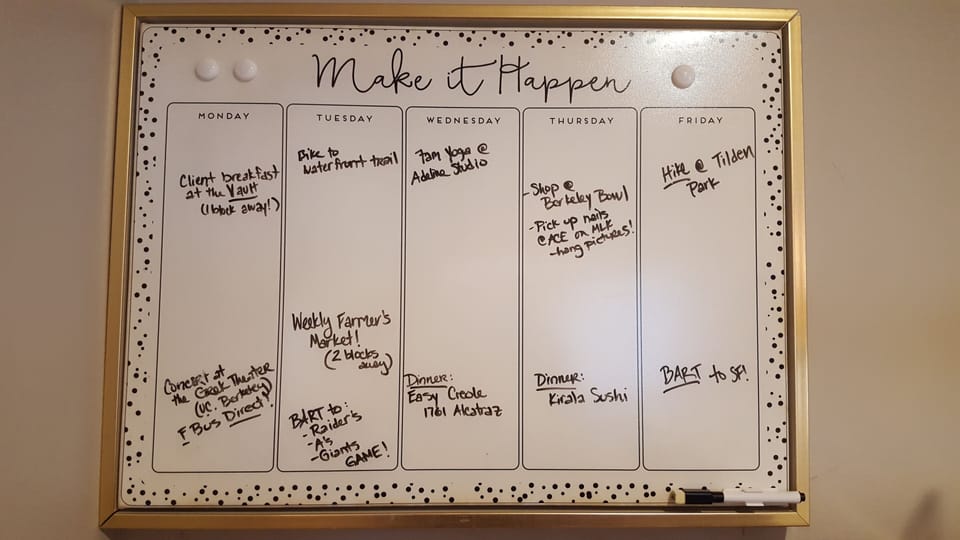 Make it Happen
MONDAY
Client breakfast
at the Vault
(1 block away!)
Concert at
the Greek Theater
(UC. Berkeley)
F Bus Direct!
TUESDAY
Bike to
waterfront trail
Weekly Farmer's
Market!
(2 blocks
away)
BART to:
- Raider's
- A's
- Giants
GAME!
WEDNESDAY
7am Yoga @
Adeline Studio
Dinner:
Easy Creole
1761 Alcatraz
THURSDAY
- Shop @
Berkeley Bowl
- Pick up nails
@ ACE on MLK
- hang pictures!
Dinner:
Kirala Sushi
FRIDAY
Hike @ Tilden
Park
BART to SF!